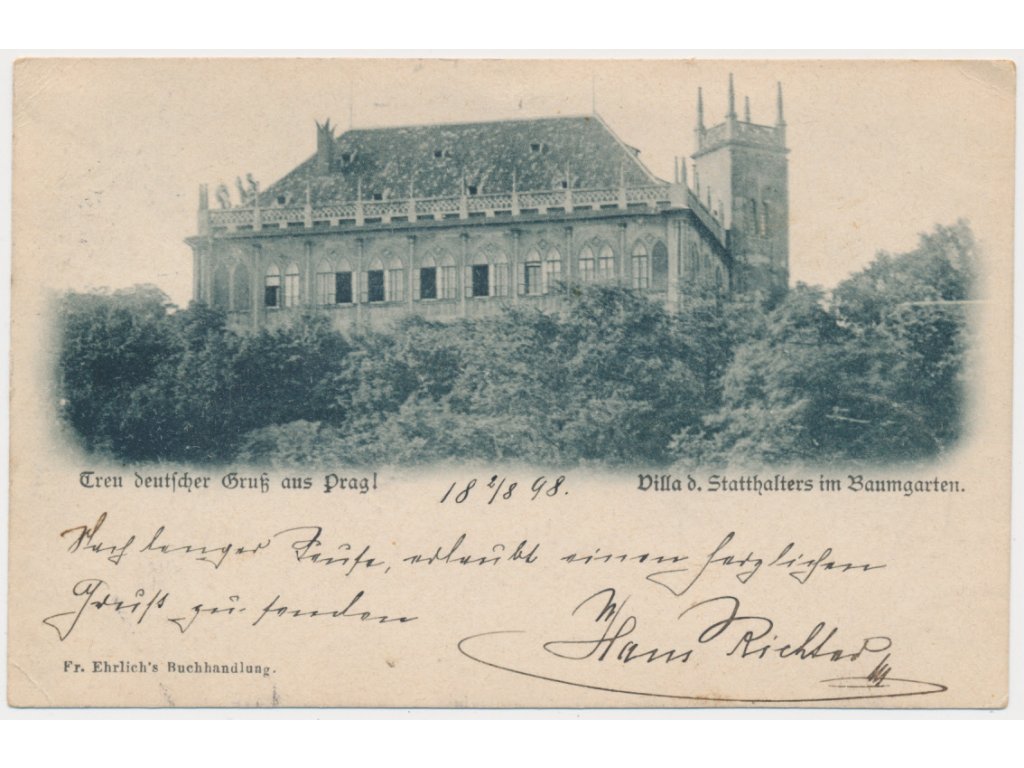 Treu deutscher Gruß aus Prag!
18 2/8 98.
Villa d. Statthalters im Baumgarten.
Nach langer Pause, erlaubt einen herzlichen
Gruß zu senden
Hans Richter
Fr. Ehrlich's Buchhandlung.